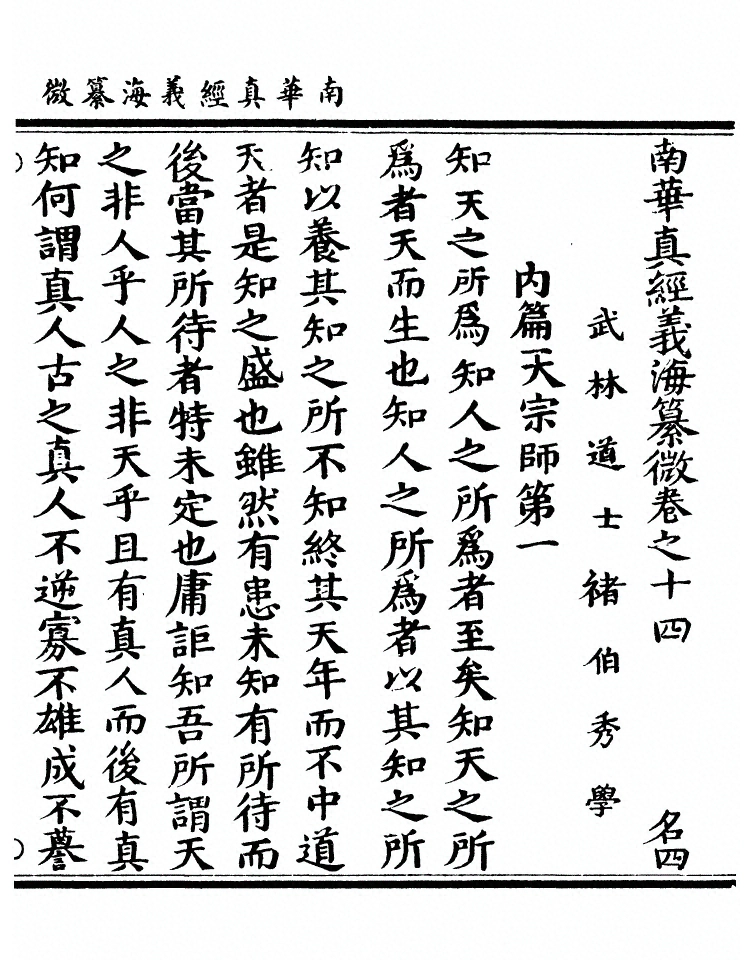 南華真經義海纂微
南華真經義海纂微卷之十四 名四
武林道士褚伯秀學
內篇天宗師第一
知天之所爲知人之所爲者至矣知天之所
爲者天而生也知人之所爲者以其知之所
知以養其知之所不知終其天年而不中道
夭者是知之盛也雖然有患未知有所待而
後當其所待者特未定也庸詎知吾所謂天
之非人乎人之非天乎且有真人而後有真
知何謂真人古之真人不逆寡不雄成不謩